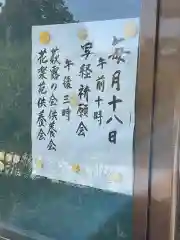 毎月十八日
午前十時
写経祈願会
午後三時
萩露の会供養会
花楽花供養会